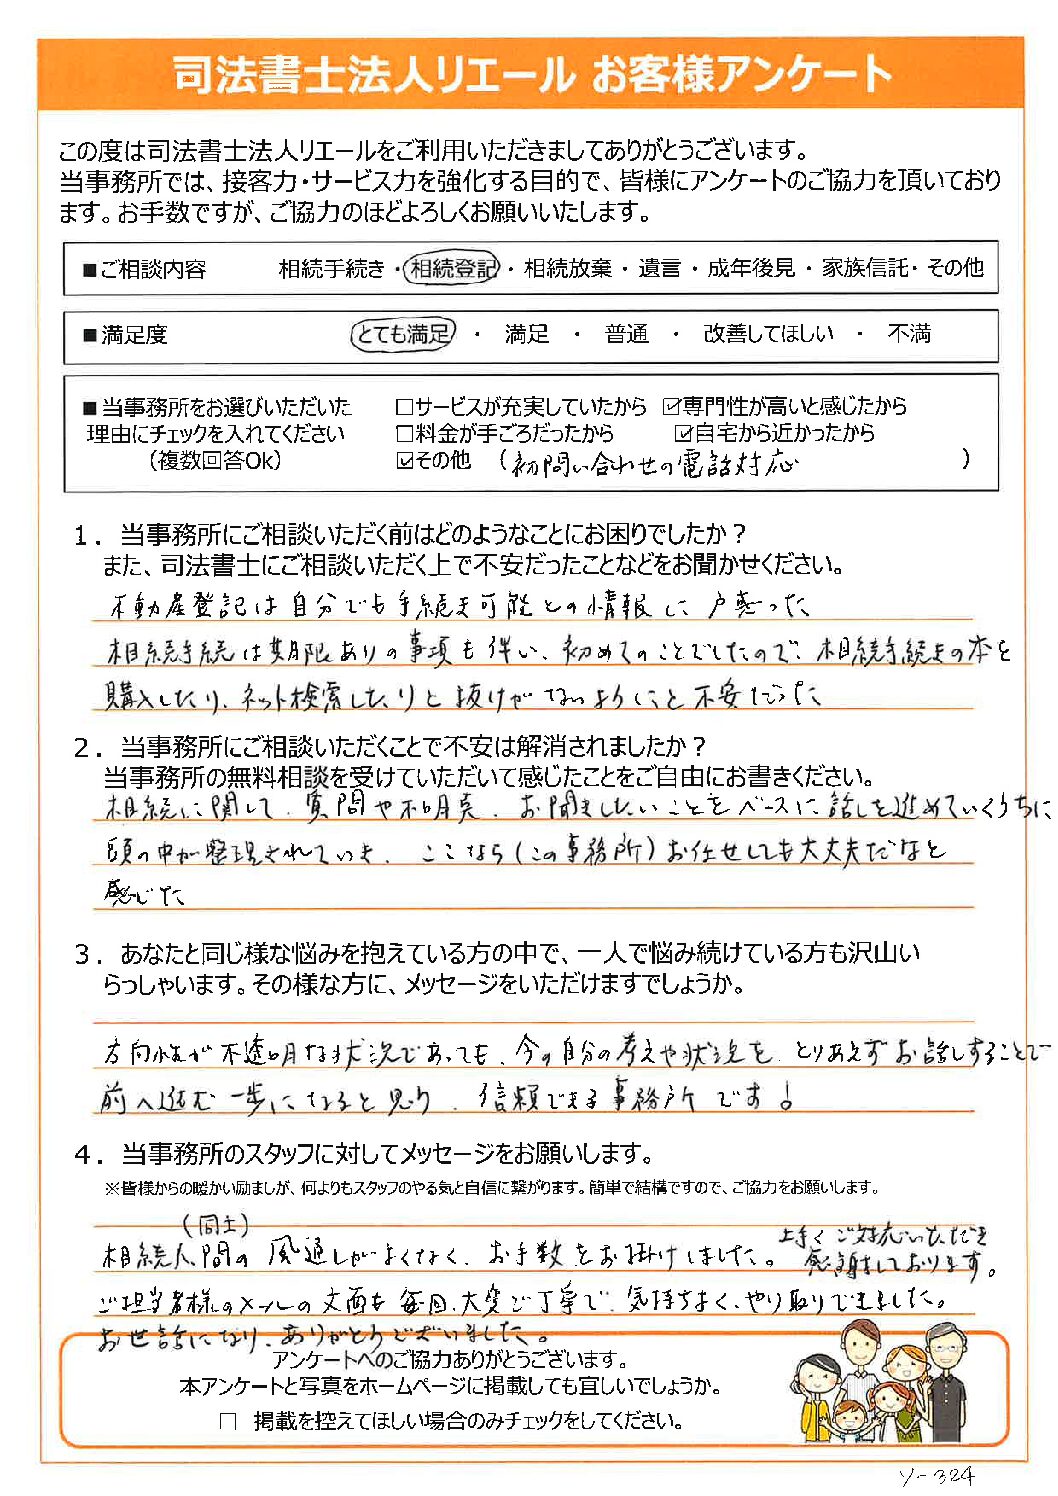 司法書士法人リエール お客様アンケート
この度は司法書士法人リエールをご利用いただきましてありがとうございます。
当事務所では、接客力・サービス力を強化する目的で、皆様にアンケートのご協力を頂いており
ます。お手数ですが、ご協力のほどよろしくお願いいたします。
■ご相談内容 相続手続き・相続登記・相続放棄・遺言・成年後見・家族信託・その他
■満足度 とても満足 ・ 満足 ・ 普通 ・ 改善してほしい ・ 不満
■当事務所をお選びいただいた □サービスが充実していたから ☑専門性が高いと感じたから
理由にチェックを入れてください □料金が手ごろだったから ☑自宅から近かったから
（複数回答Ok） ☑その他 （初問い合わせの電話対応 ）
１．当事務所にご相談いただく前はどのようなことにお困りでしたか？
また、司法書士にご相談いただく上で不安だったことなどをお聞かせください。
不動産登記は自分でも手続き可能との情報に戸惑った
相続手続は期限ありの事項も伴い、初めてのことでしたので、相続手続きの本を
購入したり、ネット検索したりと抜けがないようにと不安だった
２．当事務所にご相談いただくことで不安は解消されましたか？
当事務所の無料相談を受けていただいて感じたことをご自由にお書きください。
相続に関して、質問や不明点、お聞きしたいことをベースに話しを進めていくうちに
頭の中が整理されていき、ここなら（この事務所）お任せしても大丈夫だなと
感じた
３．あなたと同じ様な悩みを抱えている方の中で、一人で悩み続けている方も沢山い
らっしゃいます。その様な方に、メッセージをいただけますでしょうか。
方向性が不透明な状況であっても、今の自分の考えや状況を、とりあえずお話しすることで
前へ進む一歩になると思う、信頼できる事務所です！
４．当事務所のスタッフに対してメッセージをお願いします。
※皆様からの暖かい励ましが、何よりもスタッフのやる気と自信に繋がります。簡単で結構ですので、ご協力をお願いします。
（同士）
相続人間の風通しがよくなく、お手数をお掛けしました。上手くご対応いただき
感謝しております。
ご担当者様のメールの文面も毎回、大変ご丁寧で、気持ちよく、やり取りできました。
お世話になり、ありがとうございました。
アンケートへのご協力ありがとうございます。
本アンケートと写真をホームページに掲載しても宜しいでしょうか。
□ 掲載を控えてほしい場合のみチェックをしてください。
Y-324